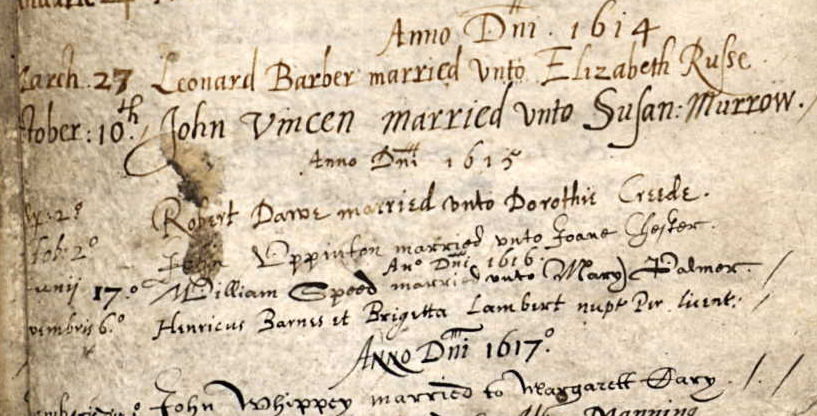 Anno Dñi. 1614
March. 27 Leonard Barber married vnto Elizabeth Russe
tober: 10th. John Vincen married vnto Susan: Murrow.
Anno Dñi 1615
2° Robert Dawe married vnto Dorothie Creede.
tob: 2° John Vppinton married vnto Joane Chester.
Ano Dñi 1616.
unij 17.° William Speed married vnto Mary Palmer.
vembris 6.° Henricus Barnes et Brigetta Lambert nupt Per licent:
Anno Dñi 1617.°
John Whippey married to Margarett
Manning